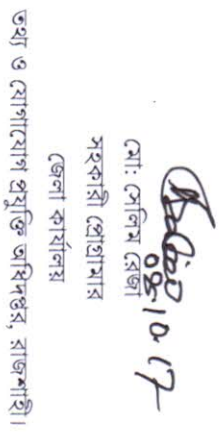 ০৪.১০.১৭
মোঃ সেলিম রেজা
সহকারী প্রোগ্রামার
জেলা কার্যালয়
তথ্য ও যোগাযোগ প্রযুক্তি অধিদপ্তর, রাজশাহী।